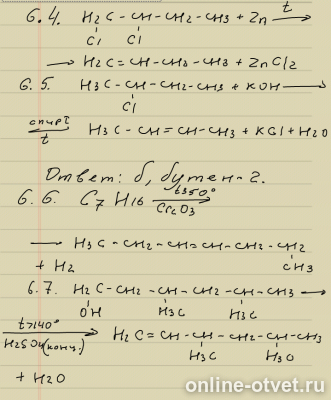 6.4. H₂C – CH – CH₂ – CH₃ + Zn –t→
Cl Cl
→ H₂C = CH – CH₂ – CH₃ + ZnCl₂
6.5. H₃C – CH – CH₂ – CH₃ + KOH →
Cl
спирт
t
H₃C – CH = CH – CH₃ + KCl + H₂O
Ответ: б, бутен-2.
6.6. C₇H₁₆ –t350°→
Cr₂O₃
→ H₃C – CH₂ – CH = CH – CH₂ – CH₂
+ H₂ CH₃
6.7. H₂C – CH₂ – CH – CH₂ – CH – CH₃ →
OH H₃C H₃C
t>140°
H₂SO₄(конц.)
→ H₂C = CH – CH – CH₂ – CH – CH₃
H₃C H₃C
+ H₂O
online-otvet.ru